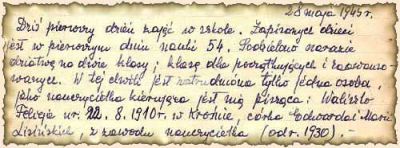 28 maja 1945 r.
Dziś pierwszy dzień zajęć w szkole. Zapisanych dzieci
jest w pierwszym dniu nauki 54. Podzielono narazie
dziatwę na dwie klasy; klasę dla początkujących i zaawanso-
wanych. W tej chwili jest zatrudniona tylko jedna osoba,
jako nauczycielka kierująca jest nią pisząca:
Felicja ur. 22. 8. 1910 r. w Kronie, córka Edwarda i Marii
z zawodu nauczycielka (od r. 1930). -